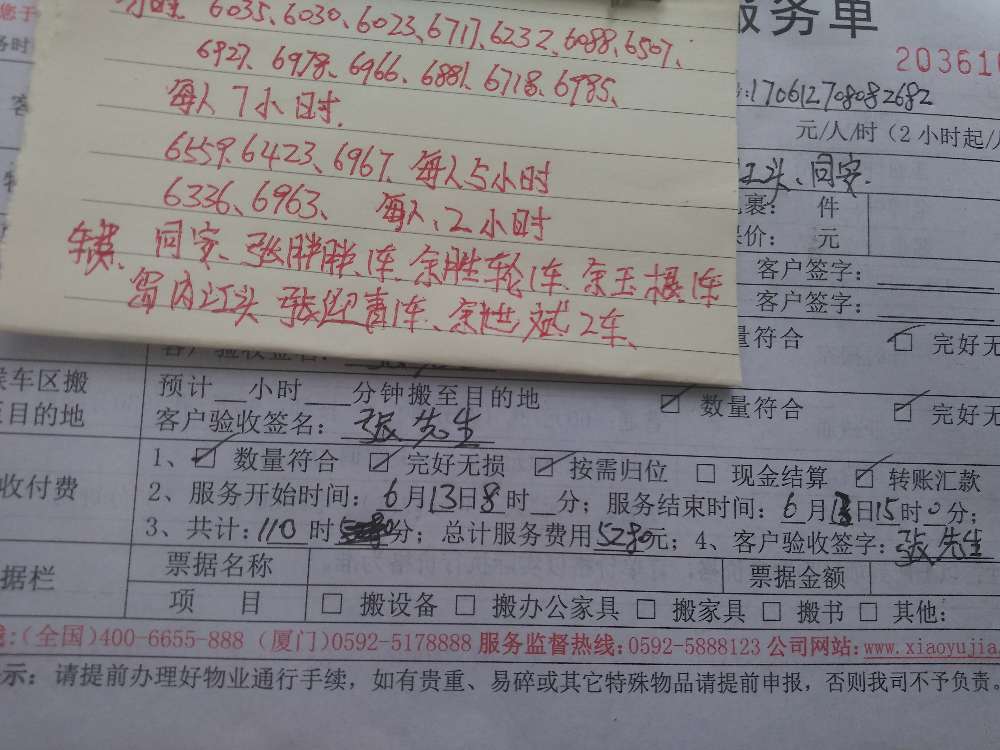 6035、6030、6023、6717、6232、6088、6507、
6927、6978、6966、6881、6718、6985、
每人7小时.
6559、6423、6967、每人5小时
6336、6963、 每人、2小时
同安、张胖胖1车、余胜轮1车、余玉根1车
岛内江头 张迎青1车、余世斌2车、
服务单
203610
:170612708082682
元/人/时(2小时起/
江头、同安.
裹: 件
价: 元
客户签字:
客户签字:
量符合 完好无
客户验收签名:
车区搬 预计__小时___分钟搬至目的地 数量符合 完好无
至目的地 客户验收签名: 张先生
收付费 1、 数量符合 完好无损 按需归位 □ 现金结算 转账汇款
2、服务开始时间: 6月13日8时__分; 服务结束时间: 6月13日15时0分;
3、共计: 110时 分; 总计服务费用5280元; 4、客户验收签字: 张先生
据栏 票据名称 票据金额
项 目 □ 搬设备 □ 搬办公家具 □ 搬家具 □ 搬书 □ 其他:
:(全国)400-6655-888 (厦门)0592-5178888 服务监督热线:0592-5888123 公司网站:www.xiaoyujia.
示: 请提前办理好物业通行手续, 如有贵重、易碎或其它特殊物品请提前申报, 否则我司不予负责。